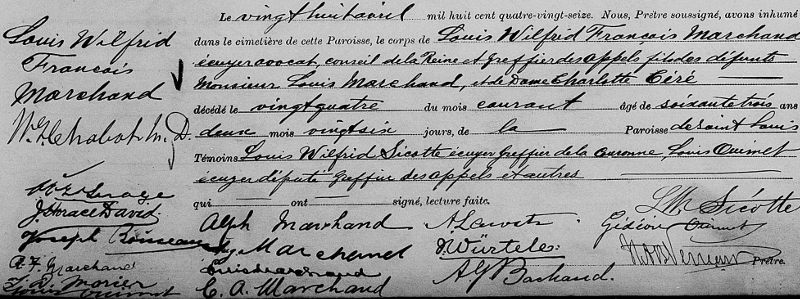 Louis Wilfrid
François
Marchand
Le vingt huit avril mil huit cent quatre-vingt-seize. Nous, Prêtre soussigné, avons inhumé
dans le cimetière de cette Paroisse, le corps de Louis Wilfrid François Marchand
écuyer avocat, conseil de la Reine et Greffier des appels fils des défunts
Monsieur Louis Marchand, et de Dame Charlotte Céré
décédé le vingt quatre du mois courant âgé de soixante trois ans
deux mois vingt six jours, de la Paroisse de Saint Louis
Témoins Louis Wilfrid Sicotte écuyer Greffier de la couronne, Louis Ouimet
écuyer député Greffier des appels et autres
qui ont signé, lecture faite.
J. Horace David.
Joseph
A. F. Marchand
Louis Ouimet
Alph Marchand
Marchand
Louis Marchand
E. A. Marchand
Würtele
Bachand.
Sicotte
Gédéon Ouimet
Prêtre.